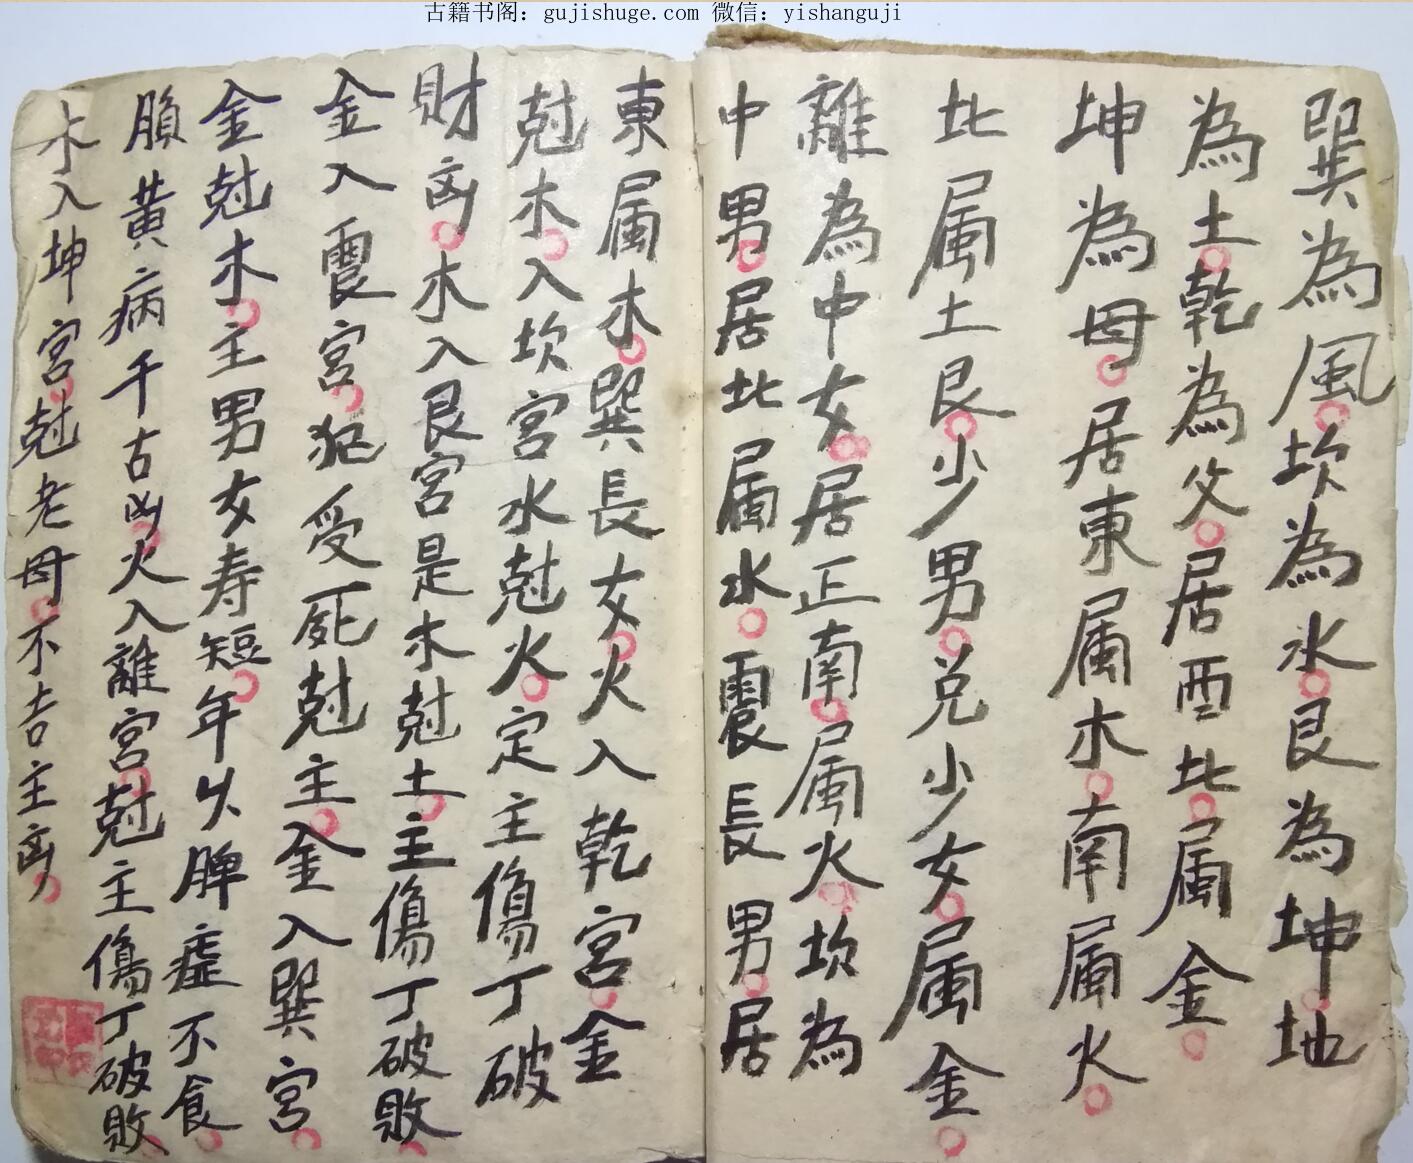 古籍书阁：gujishuge.com 微信：yishanguji
巽為風坎為水艮為坤地
為土乾為父居西北属金
坤為母居東属木南属火
北属土艮少男兑少女属金
離為中女居正南属火坎為
中男居北属水震長男居
東属木巽長女火入乾宮金
尅木入坎宮水尅火定主傷丁破
財凶木入艮宮是木尅土主傷丁破敗
金入震宮犯受死尅主金入巽宮
金尅木主男女寿短年以脾虚不食
臉黃病千古凶火入離宮尅主傷丁破敗
木入坤宮尅老母不吉主凶